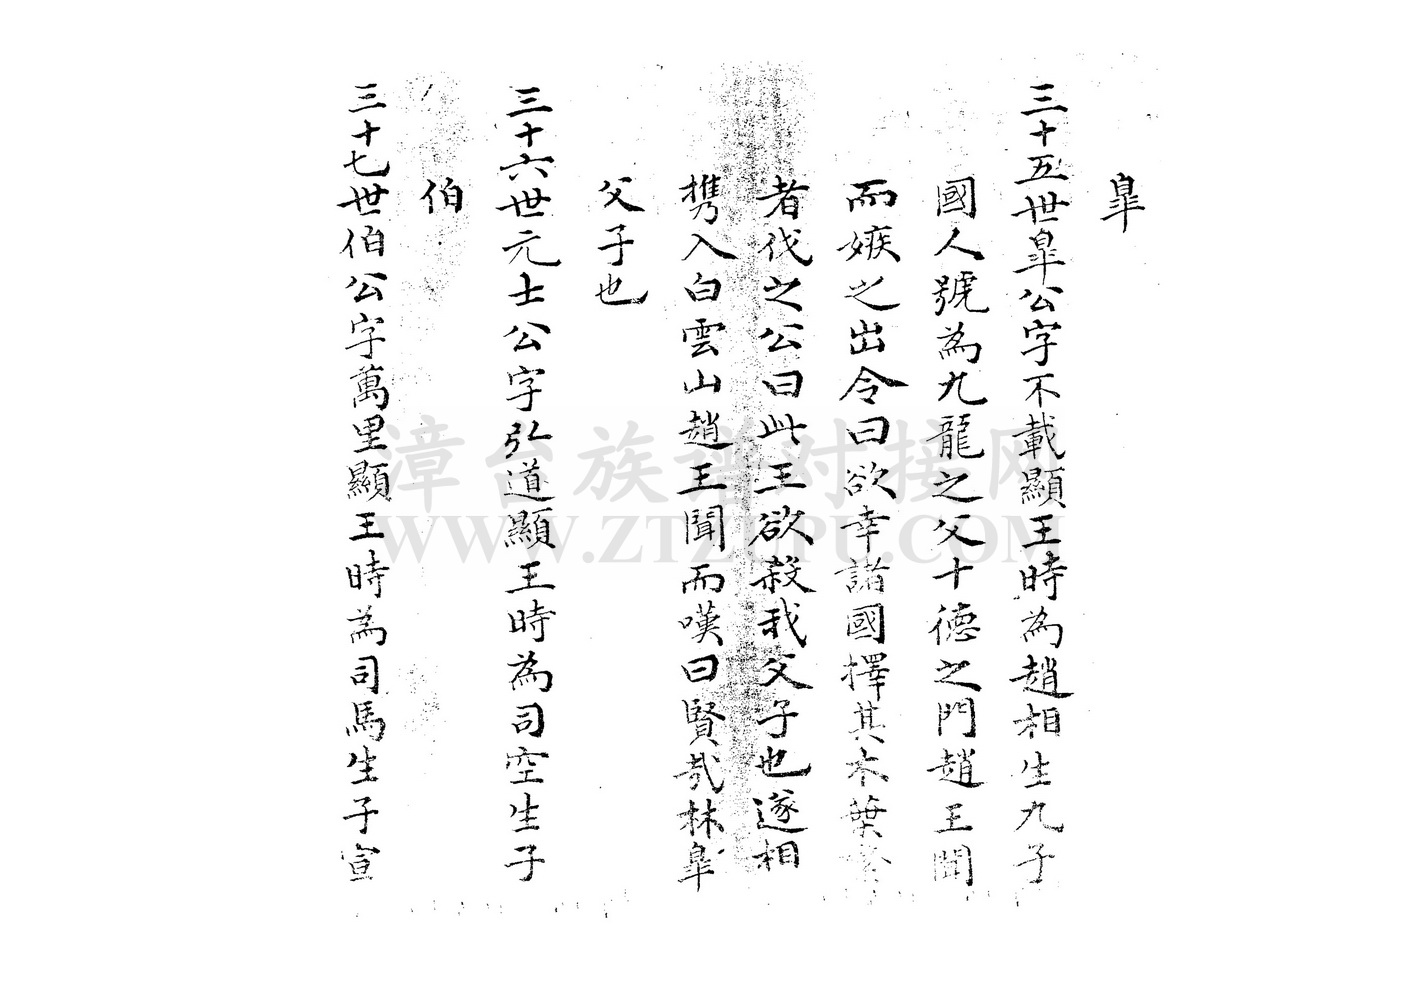 皐
三十五世皐公字不載顯王時為趙相生九子
國人號為九龍之父十德之門趙王聞
而嫉之出令曰欲幸諸國擇其木葉繁
者伐之公曰此王欲殺我父子也遂相
携入白雲山趙王聞而嘆曰賢哉林皐
父子也
三十六世元士公字弘道顯王時為司空生子
伯
三十七世伯公字萬里顯王時為司馬生子宣
漳台族谱对接网
WWW.ZTZUPU.COM